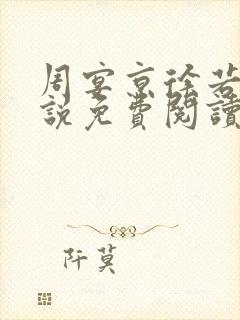 周宴京徐若
說免費閱讀
阡莫